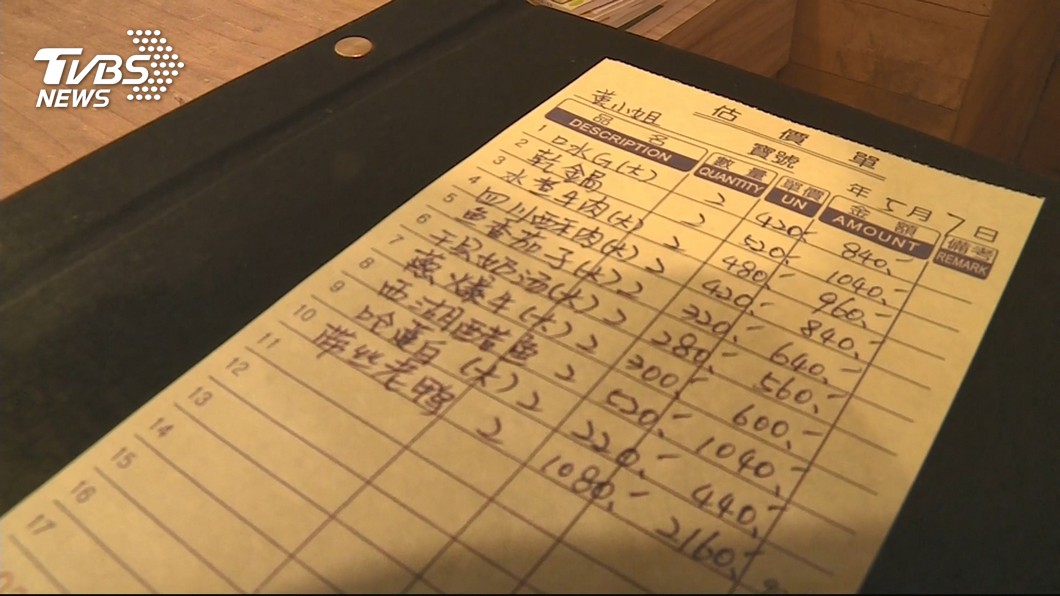 TVBS
NEWS
估價單
黃小姐 寶號 年 5月7日
品名 數量 單價 金額 備考
DESCRIPTION QUANTITY UN AMOUNT REMARK
1 口水G(大) 2 420.- 840.-
2 乾鍋 2 520.- 1040.-
3 水煮牛肉(大) 2 480.- 960.-
4 四川 肉(大) 2 420.- 840.-
5 魚香茄子(大) 2 320.- 640.-
6 奶汤(大) 2 280.- 560.-
7 爆牛(大) 2 300.- 600.-
8 西湖醋魚 2 520.- 1040.-
9 (大) 2 220.- 440.-
10 老鴨 2 1080.- 2160.-
11
12
13
14
15
16
17